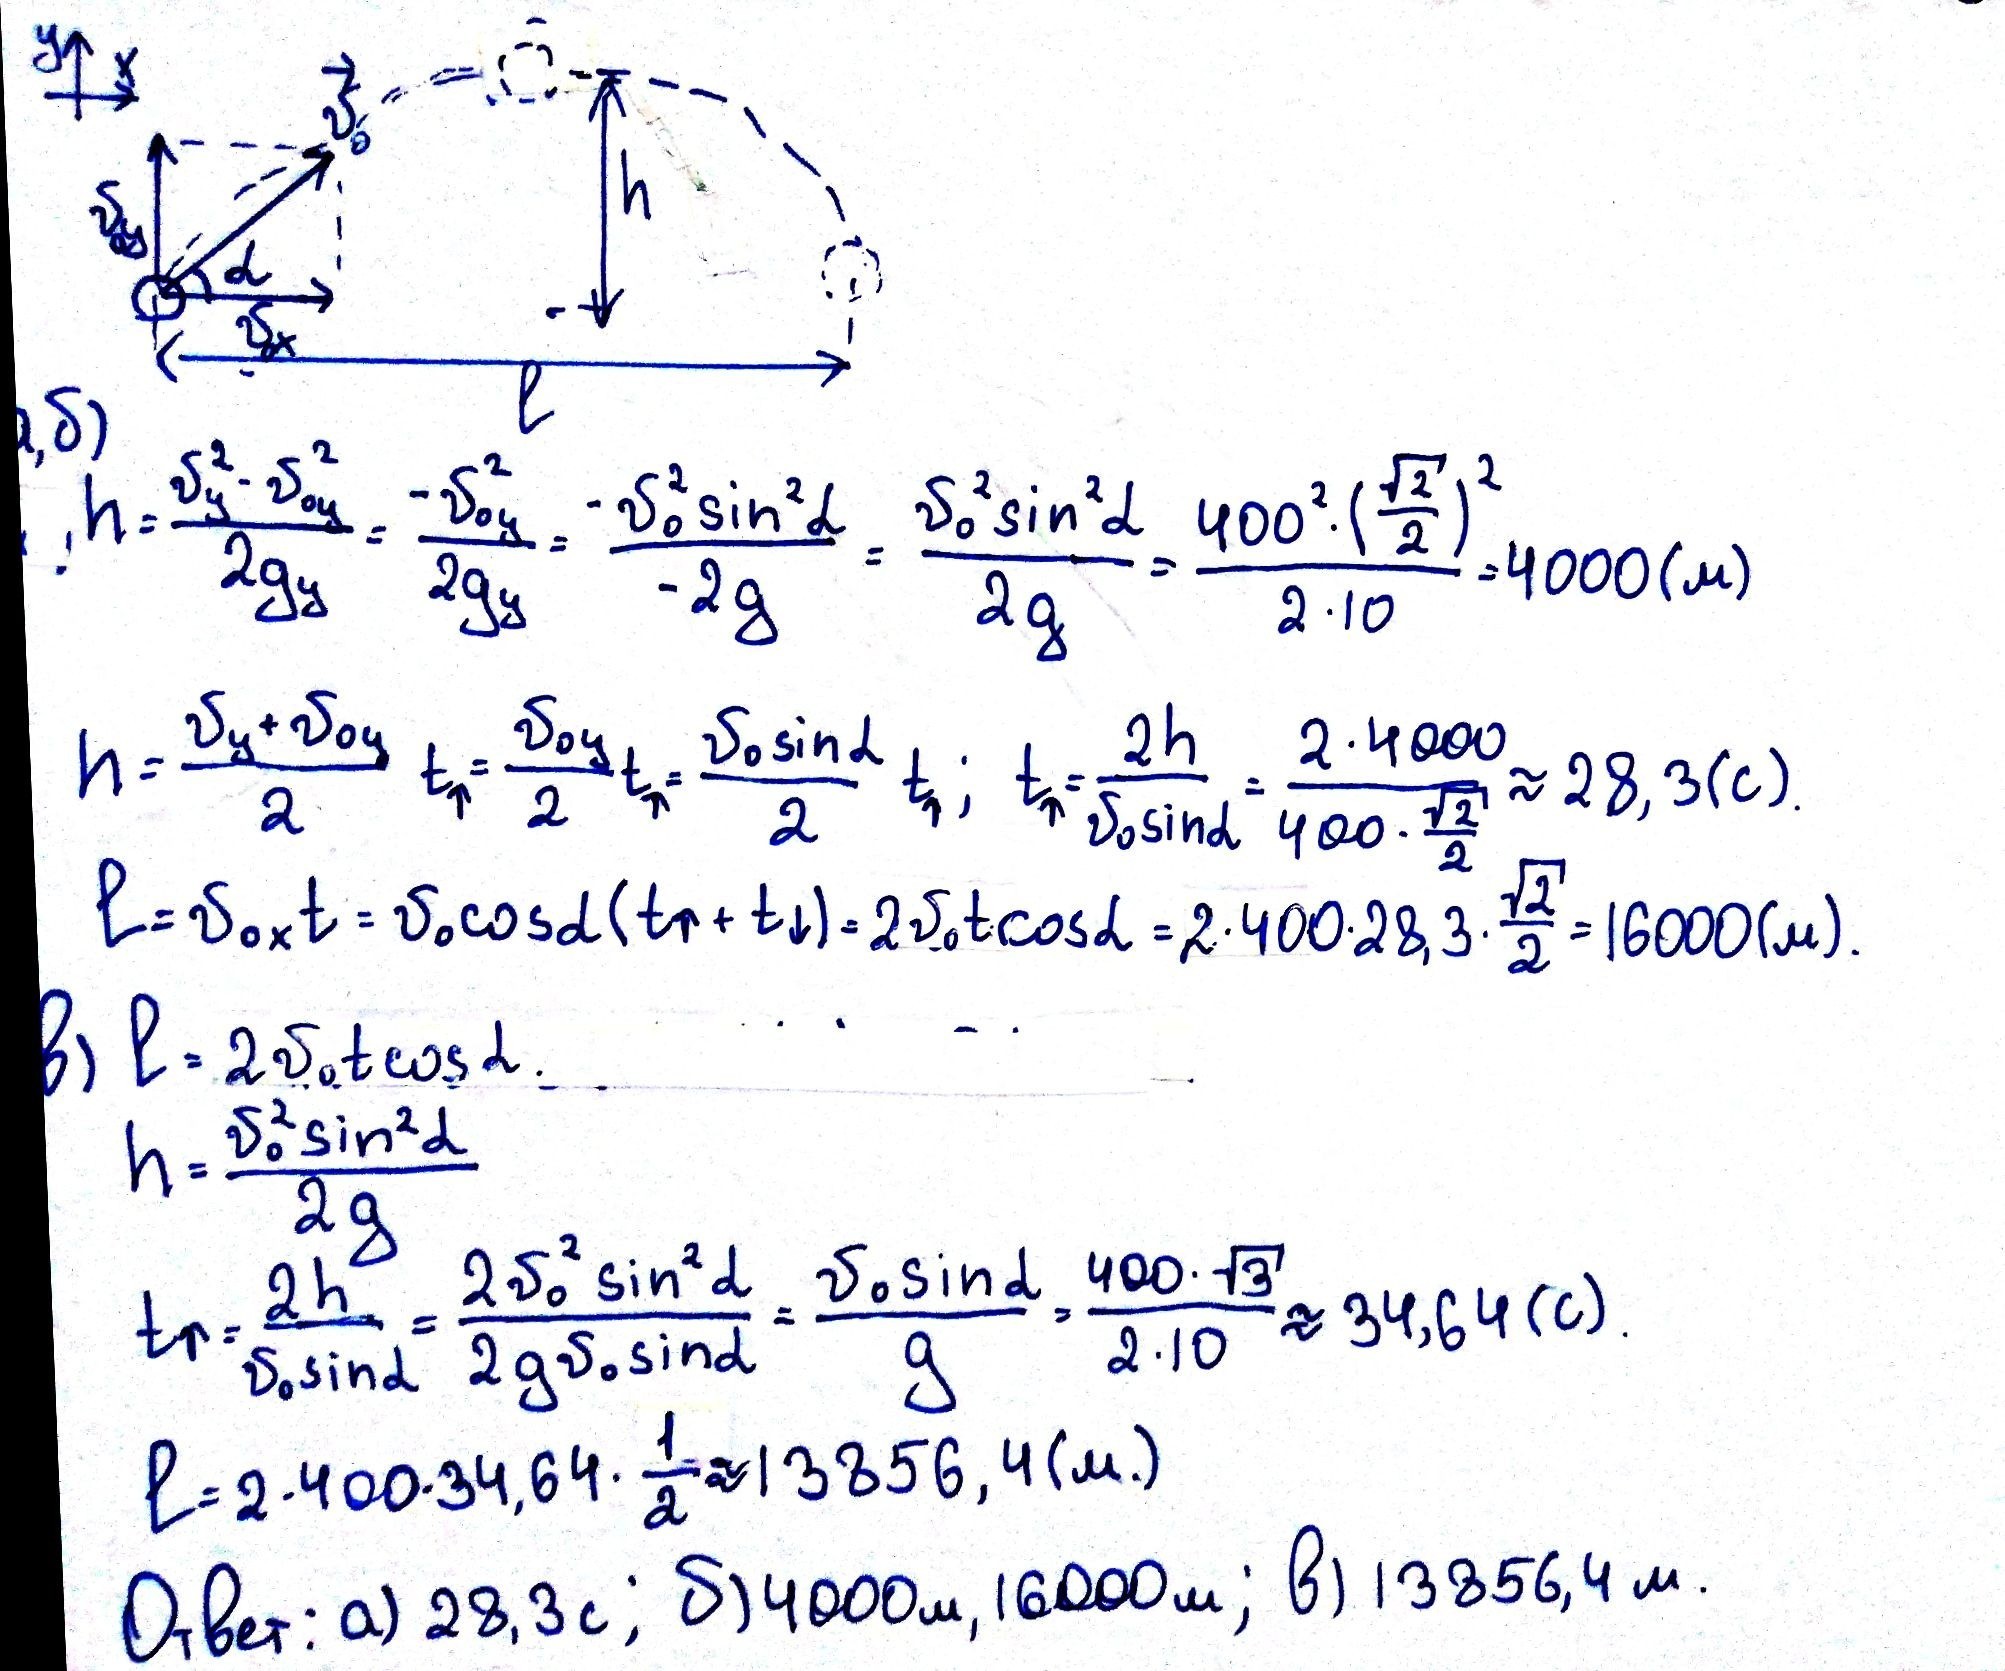 y x
v⃗₀
v₀y
α
v₀x
h
l
а,б)
h = (v_y² - v₀y²)/(2g_y) = (-v₀y²)/(2g_y) = (-v₀² sin²α)/(-2g) = (v₀² sin²α)/(2g) = (400² · (√2/2)²)/(2·10) = 4000 (м)
h = (v_y + v₀y)/2 t↑ = v₀y/2 t↑ = (v₀ sinα)/2 t↑; t↑ = 2h/(v₀ sinα) = (2·4000)/(400·√2/2) ≈ 28,3 (с).
l = v₀x t = v₀ cosα (t↑ + t↓) = 2v₀t cosα = 2·400·28,3·√2/2 = 16000 (м).
в) l = 2v₀t cosα.
h = (v₀² sin²α)/(2g)
t↑ = 2h/(v₀ sinα) = (2v₀² sin²α)/(2g v₀ sinα) = (v₀ sinα)/g = (400·√3)/(2·10) ≈ 34,64 (с).
l = 2·400·34,64·1/2 ≈ 13856,4 (м.)
Ответ: а) 28,3 с; б) 4000 м, 16000 м; в) 13856,4 м.